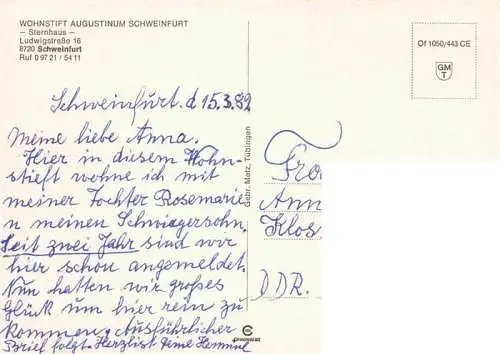 WOHNSTIFT AUGUSTINUM SCHWEINFURT
– Sternhaus –
Ludwigstraße 16
8720 Schweinfurt
Ruf 0 97 21 / 54 11
Of 1050/443 CE
GM
T
Schweinfurt. d 15.3.82
Meine liebe Anna.
Hier in diesem Wohn-
stieft wohne ich mit
meiner Tochter Rosemarie
n meinen Schwiegersohn.
Seit zwei Jahr sind wir
hier schon angemeldet.
Nun hatten wir großes
Glück um hier rein zu
kommen. Ausführlicher
Brief folgt. Herzlist Deine
Gebr. Metz, Tübingen
Fra
Ann
Klos
DDR.